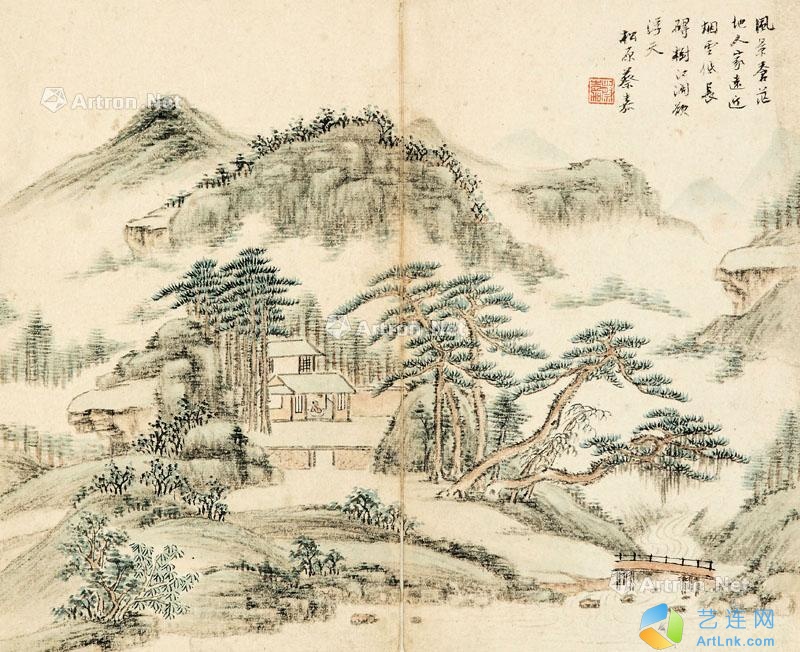 風景蒼茫
地人家遠近
烟雲低長
碍樹江闊欲
浮天
松原蔡嘉
Artron.Net
Artron.Net
Artron.Net
Artron.Net
艺连网
ArtLnk.com